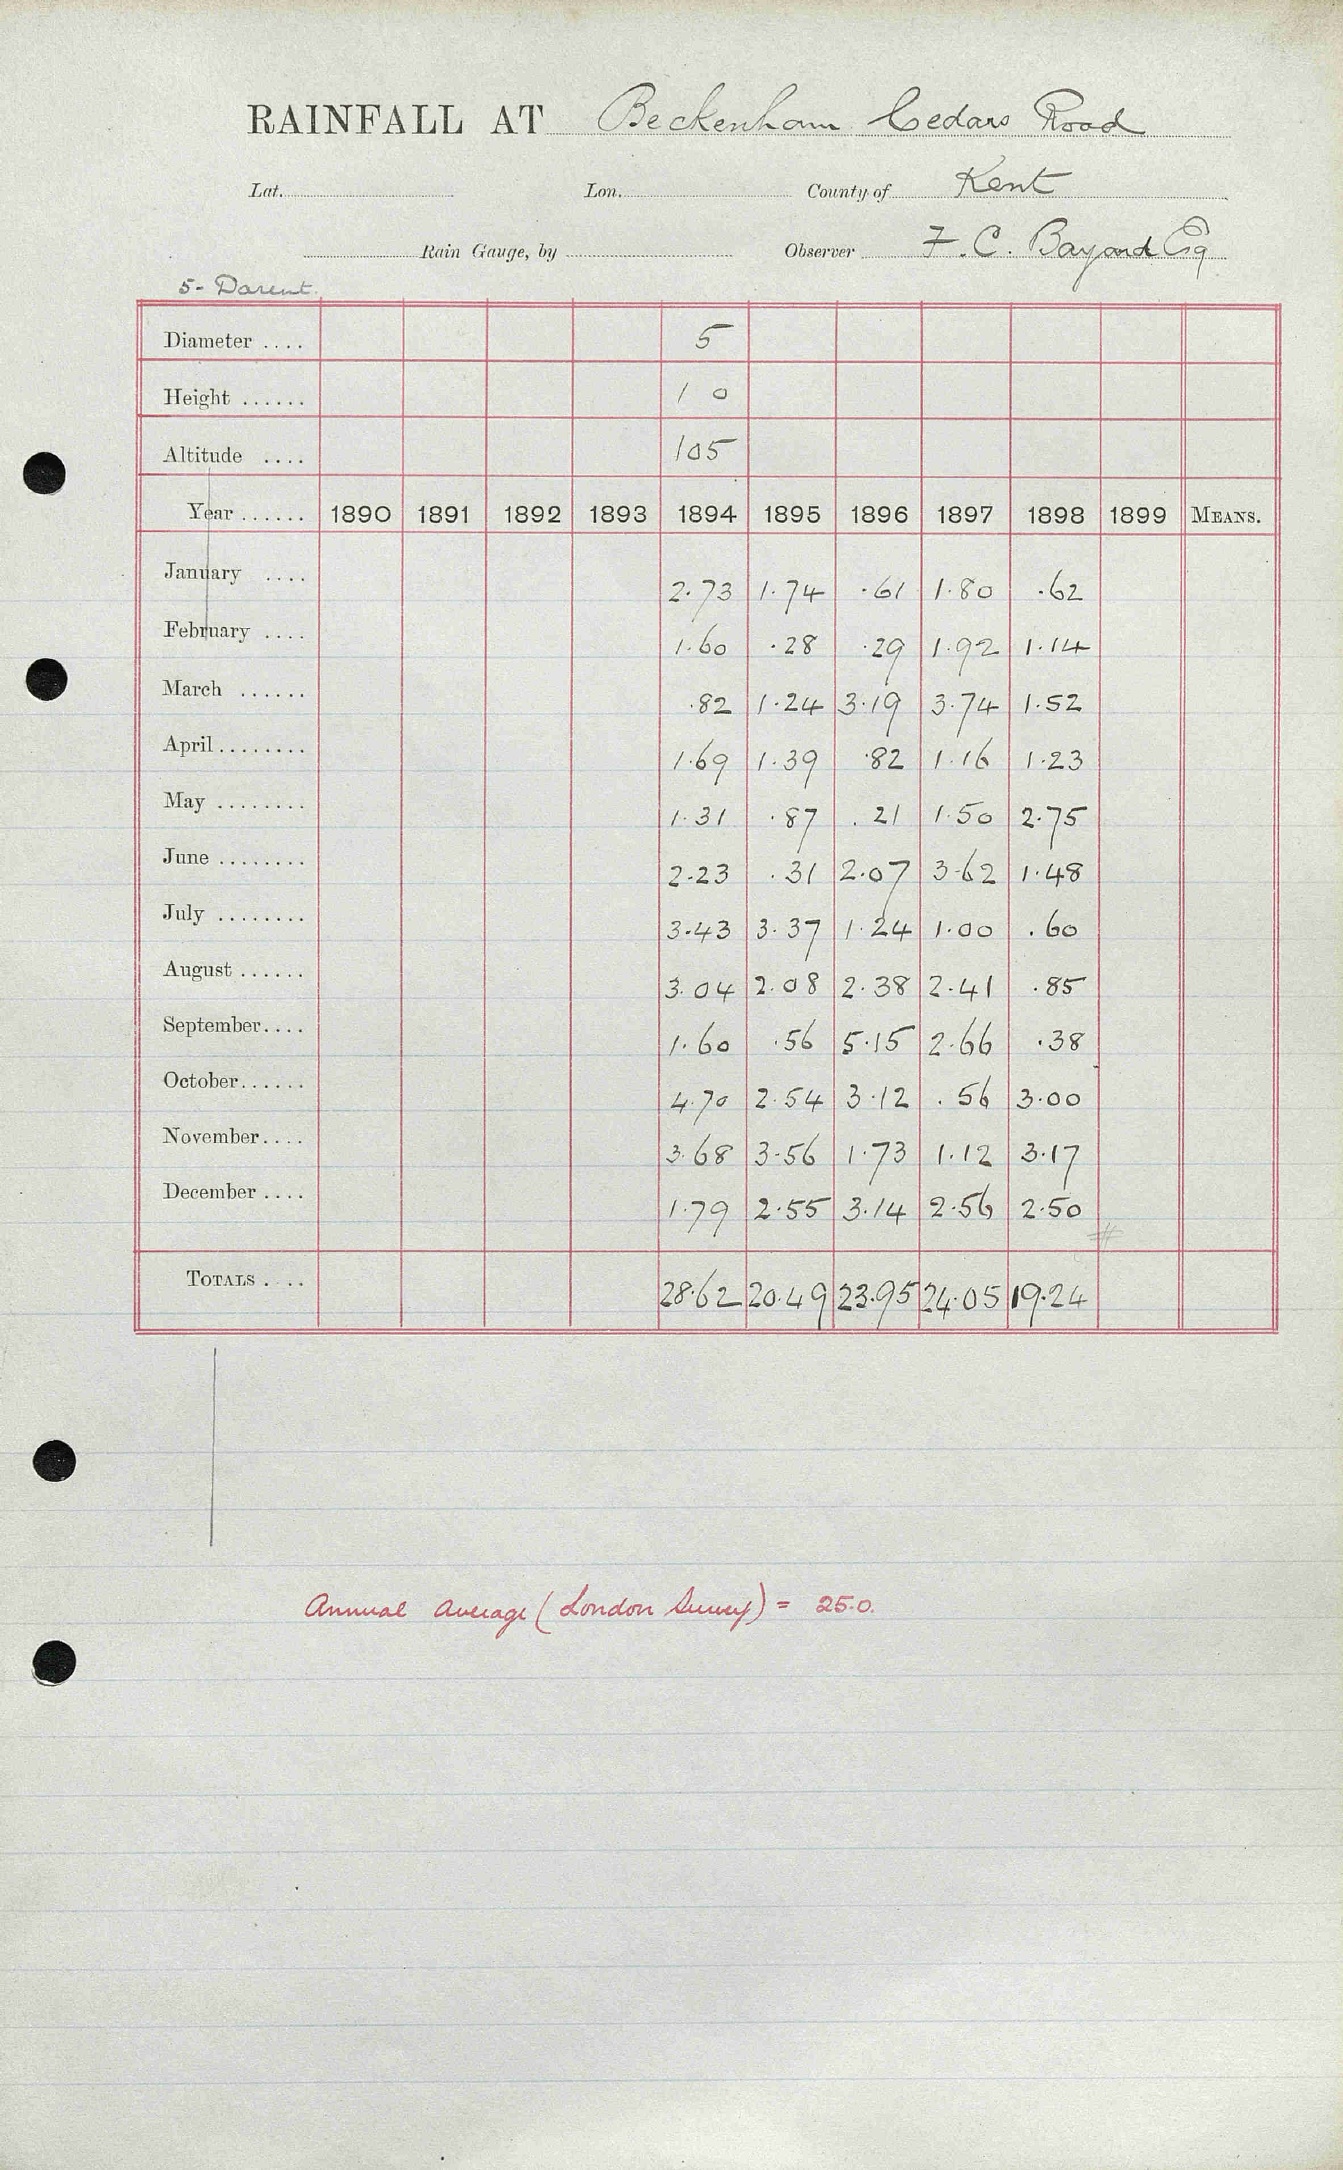 RAINFALL AT Beckenham Cedars Road
Lat. Lon. County of Kent
Rain Gauge, by Observer F. C. Bayard Esq
5- Darent.
Diameter .... 5
Height ...... 1 0
Altitude .... 105
Year ...... 1890 1891 1892 1893 1894 1895 1896 1897 1898 1899 MEANS.
January .... 2.73 1.74 .61 1.80 .62
February .... 1.60 .28 .29 1.92 1.14
March ...... .82 1.24 3.19 3.74 1.52
April ........ 1.69 1.39 .82 1.16 1.23
May ........ 1.31 .87 .21 1.50 2.75
June ........ 2.23 .31 2.07 3.62 1.48
July ........ 3.43 3.37 1.24 1.00 .60
August ...... 3.04 2.08 2.38 2.41 .85
September.... 1.60 .56 5.15 2.66 .38
October...... 4.70 2.54 3.12 .56 3.00
November.... 3.68 3.56 1.73 1.12 3.17
December .... 1.79 2.55 3.14 2.56 2.50
#
TOTALS .... 28.62 20.49 23.95 24.05 19.24
Annual Average (London Survey) = 25.0.